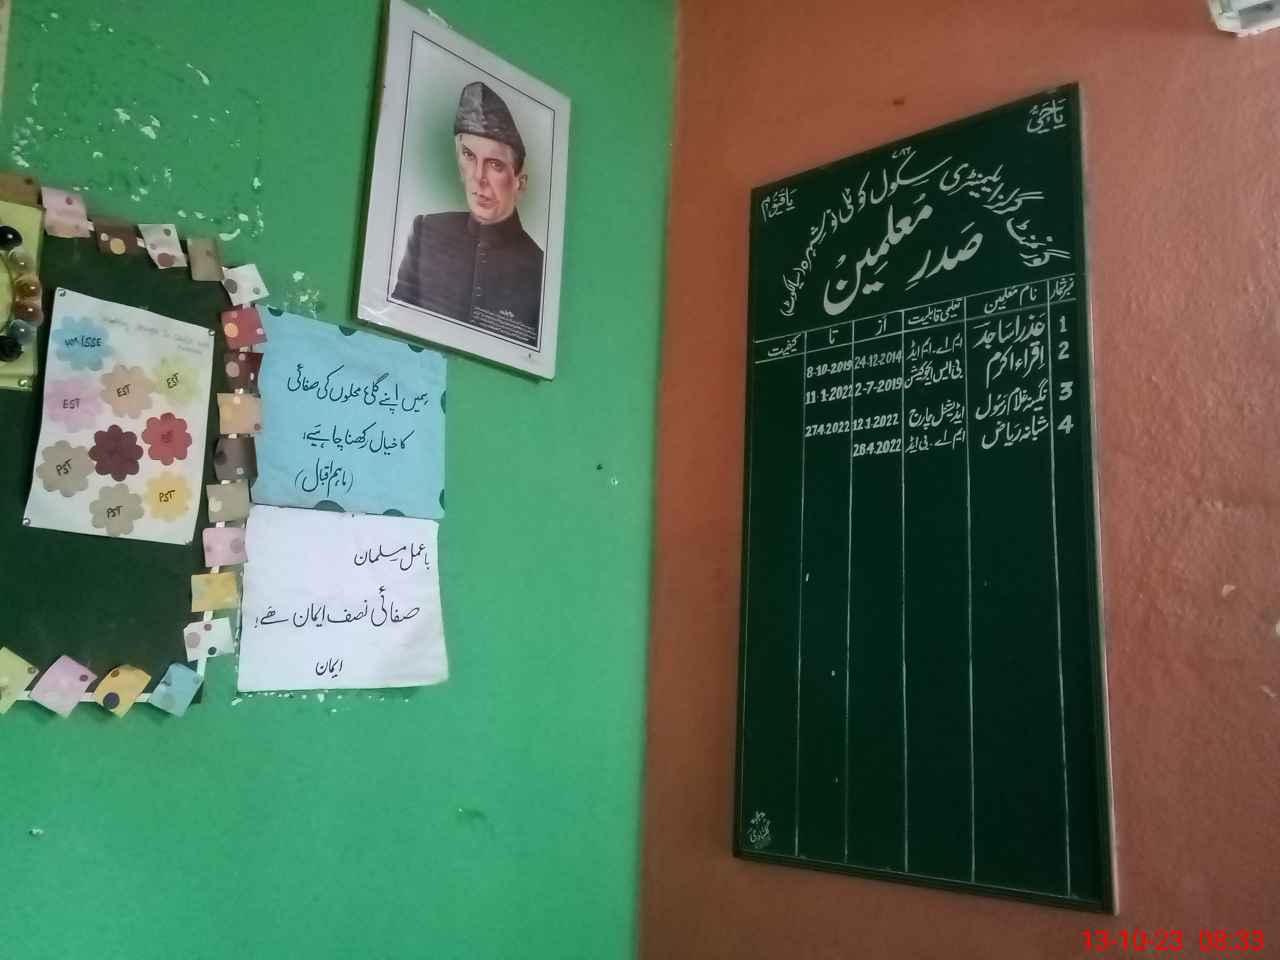 یَا حَیُّ
یَا قَیُّوْم
گورنمنٹ گرلز ایلیمنٹری سکول کوٹلی نوشہرہ (سیالکوٹ)
صَدرِ مُعلمِینُ
نمبر شمار نام معلمین تعلیمی قابلیت از تا کیفیت
1 عَذرا سَاجد ایم اے۔ایم ایڈ 24-12-2014 8-10-2019
2 اِقراء اکرم بی ایس ایجوکیشن 2-7-2019 11-1-2022
3 نگینہ غلام رَسُول ایڈیشنل چارج 12.1.2022 27.4.2022
4 شبانہ ریاض ایم اے ۔ بی ایڈ 28.4.2022
ہمیں اپنے گلی محلوں کی صفائی
کا خیال رکھنا چاہیَے!
(ماہم اقبال)
با عمل مسلمان
صفائی نصف ایمان ھَے!
ایمان
HM.(SSE
EST
EST
EST
EST
PST
PST
PST
13-10-23 08:33